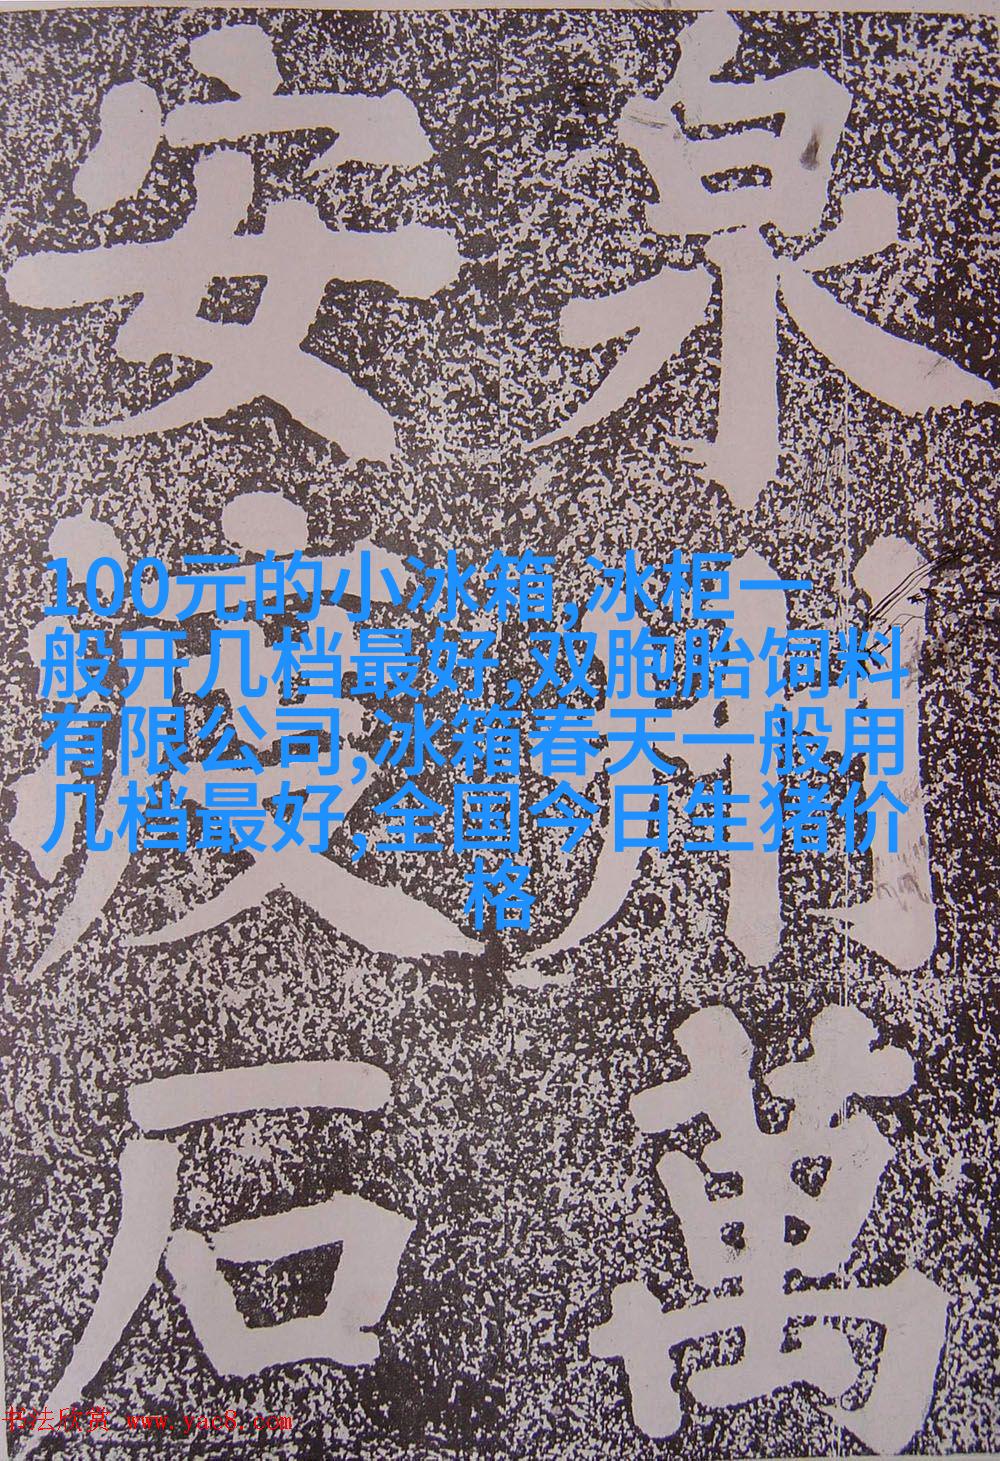 泉州萬
安渡石
100元的小冰箱,冰柜一
般开几档最好,双胞胎饲料
有限公司,冰箱春天一般用
几档最好,全国今日生猪价
格
书法欣赏 www.yac8.com